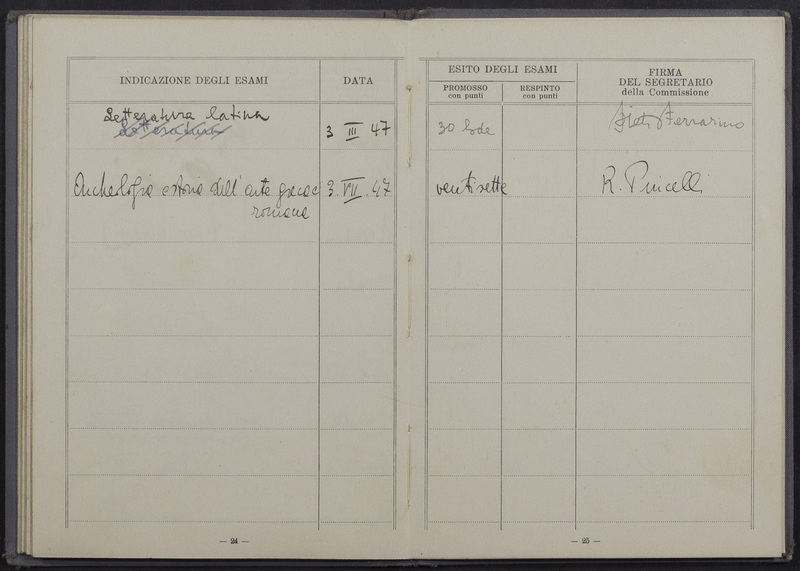 INDICAZIONE DEGLI ESAMI
DATA
Letteratura latina
3 III 47
Archeologia e storia dell'arte greca e
romana
3. VII. 47
— 24 —
ESITO DEGLI ESAMI
PROMOSSO
con punti
RESPINTO
con punti
FIRMA
DEL SEGRETARIO
della Commissione
30 lode
Ferrarino
ventisette
R.
— 25 —